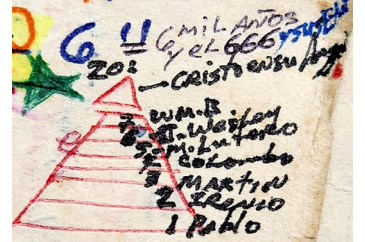 6 U 6 MIL AÑOS
y EL 666
20:
CRISTO EN SU
7 WM.B
6 J. Wesley
5 M. LUTERO
4 COLOMBO
3 MARTIN
2 IRENIO
1 Pablo